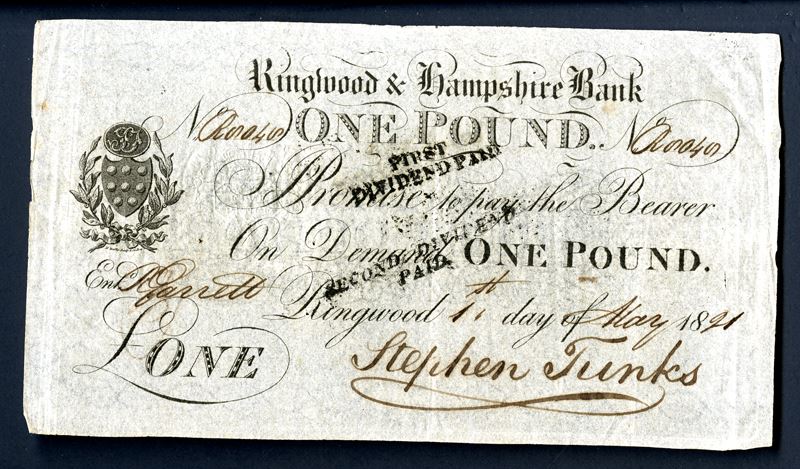 Ringwood & Hampshire Bank
No ONE POUND. No
I Promise to pay the Bearer
On Demand ONE POUND.
FIRST
DIVIDEND PAID
SECOND DIVIDEND
PAID
Entd Garrett
Ringwood 1st day of May 1821
£ONE
Stephen Tunks